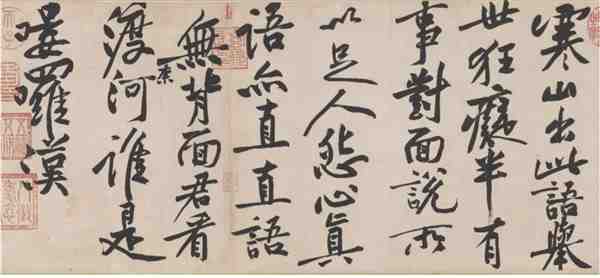 寒山出此語舉
世狂癡半有
事對面說所
以足人怨心真
語亦直直語
無背面君看
渡奈河誰是
嘍囉漢